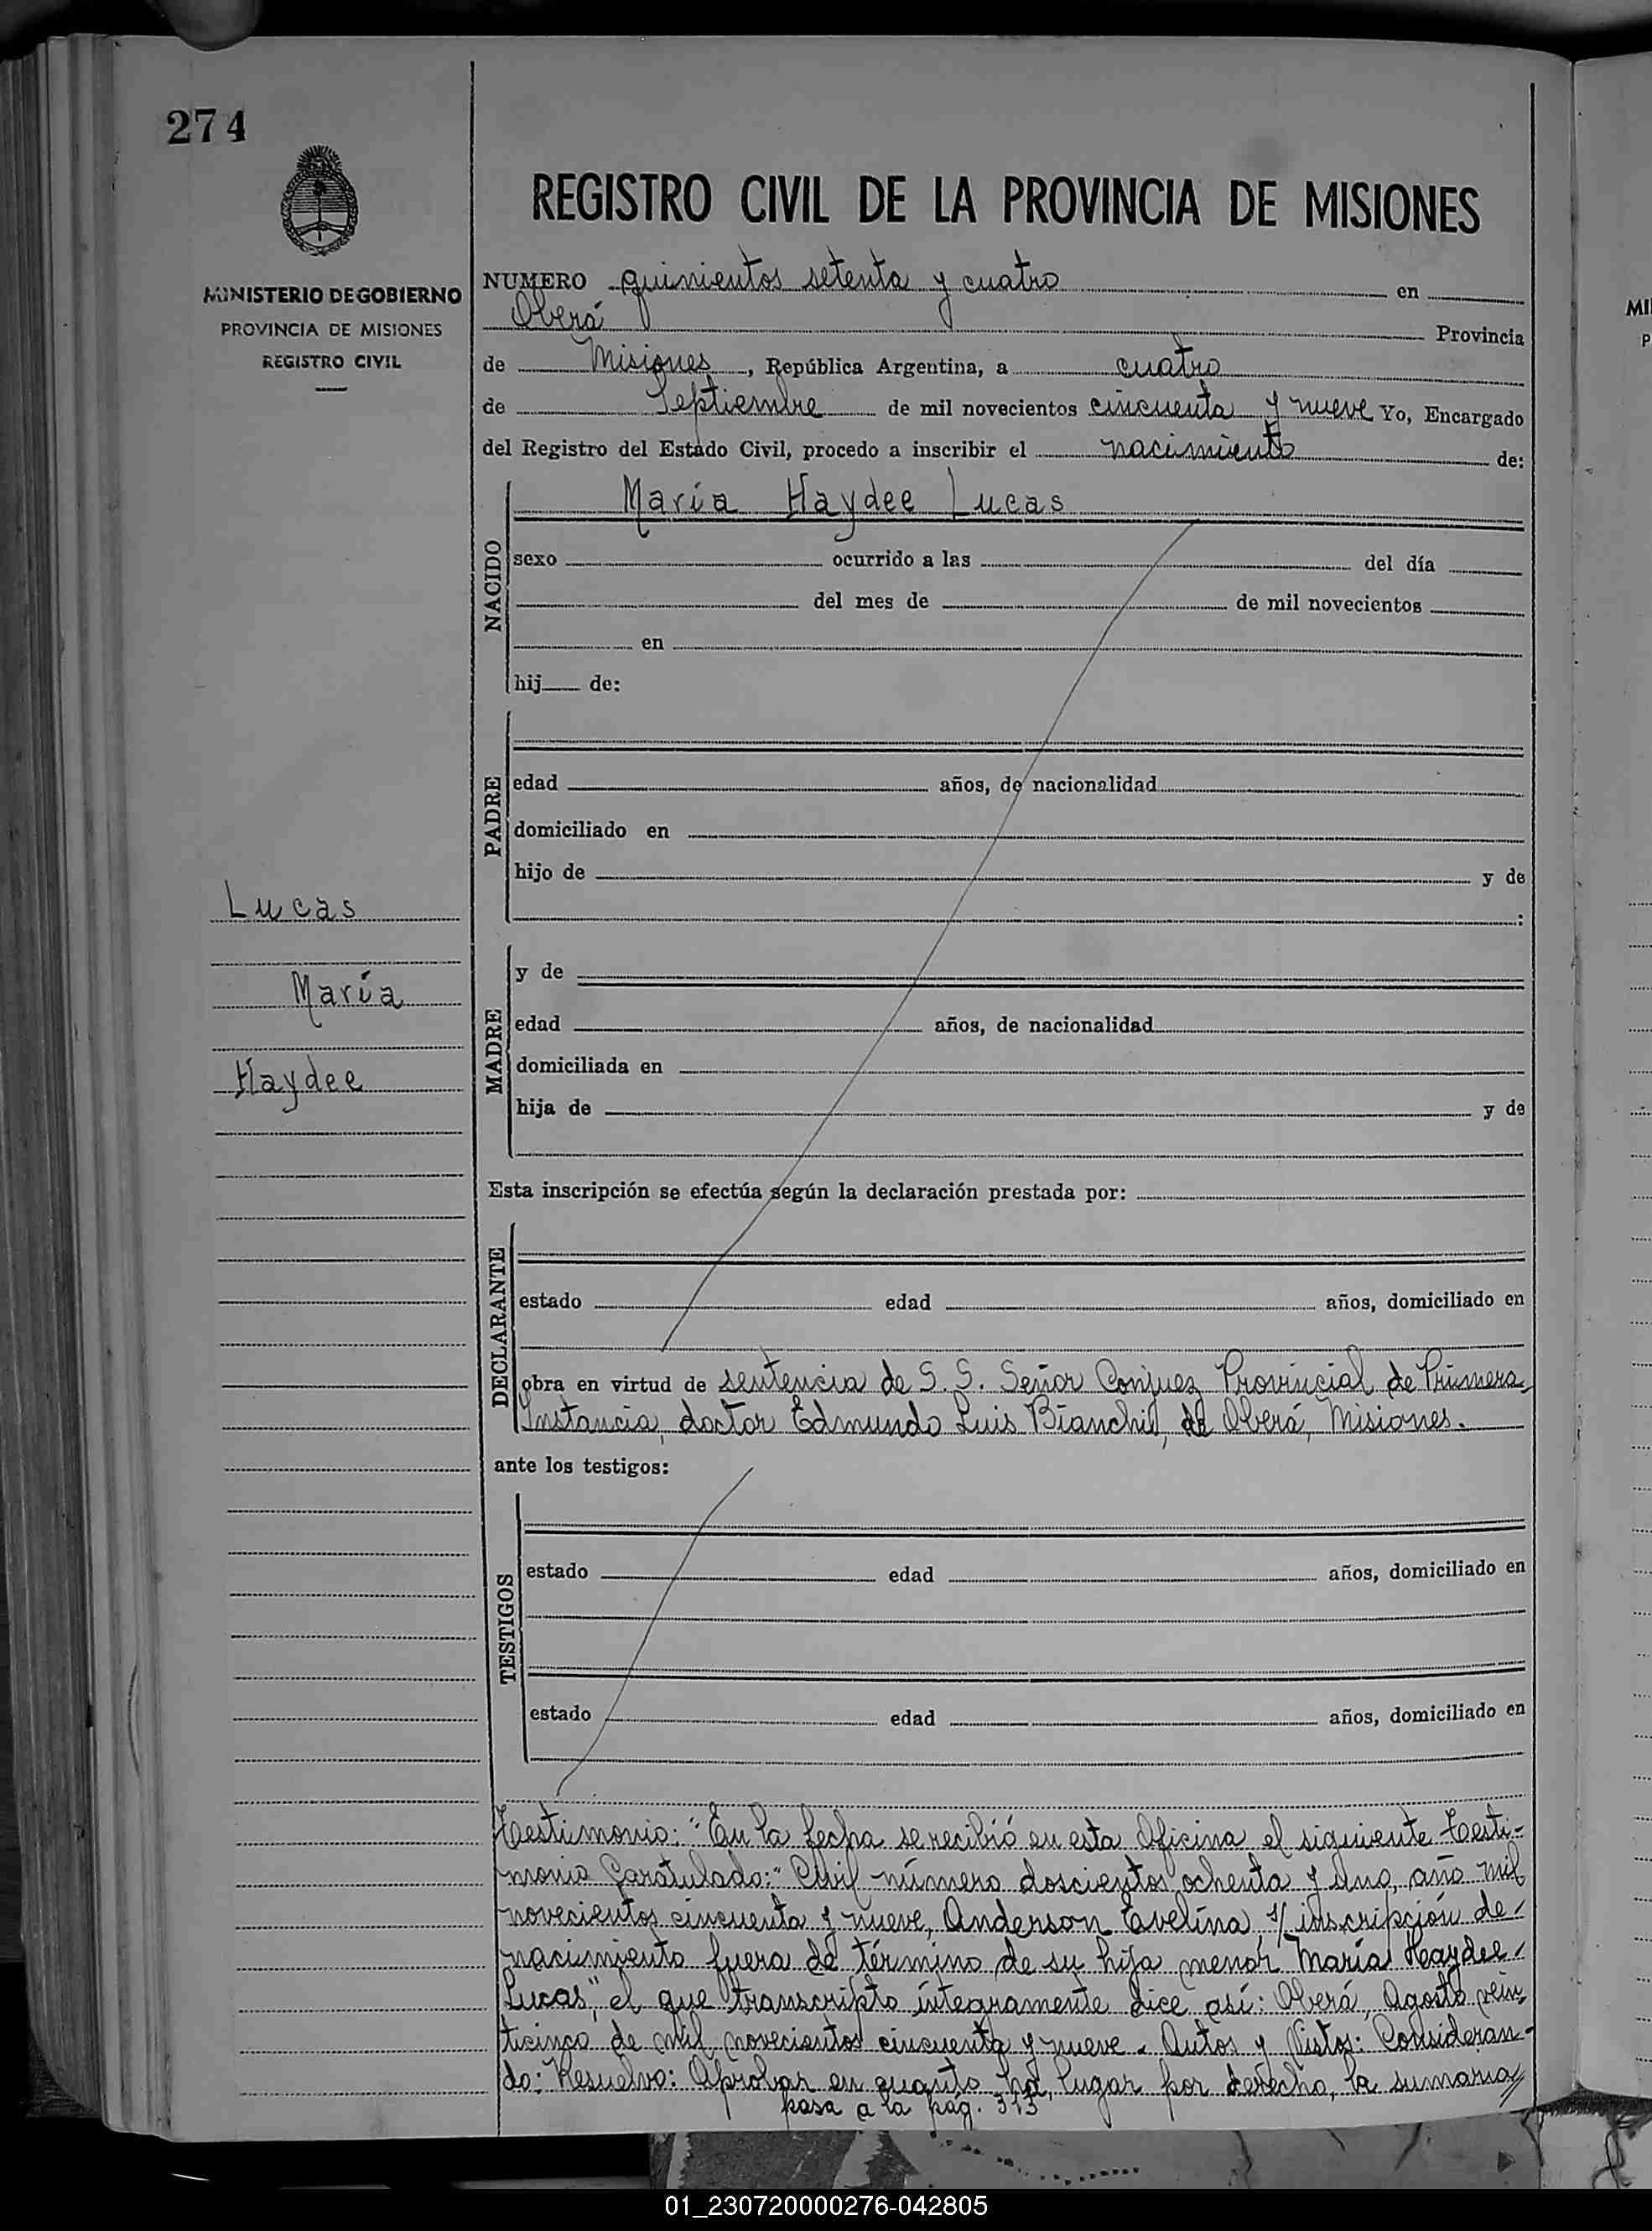 274
REGISTRO CIVIL DE LA PROVINCIA DE MISIONES
MINISTERIO DE GOBIERNO
PROVINCIA DE MISIONES
REGISTRO CIVIL
NUMERO quinientos setenta y cuatro en
Oberá Provincia
de Misiones, República Argentina, a cuatro
de Septiembre de mil novecientos cincuenta y nueve Yo, Encargado
del Registro del Estado Civil, procedo a inscribir el nacimiento de:
NACIDO
María Haydee Lucas
sexo ocurrido a las del día
del mes de de mil novecientos
en
hij de:
PADRE
edad años, de nacionalidad
domiciliado en
hijo de y de
:
Lucas
María
Haydee
MADRE
y de
edad años, de nacionalidad
domiciliada en
hija de y de
Esta inscripción se efectúa según la declaración prestada por:
DECLARANTE
estado edad años, domiciliado en
obra en virtud de sentencia de S. S. Señor Conjuez Provincial de Primera
Instancia, doctor Edmundo Luis Bianchi, de Oberá, Misiones.
ante los testigos:
TESTIGOS
estado edad años, domiciliado en
estado edad años, domiciliado en
Testimonio: "En la fecha se recibió en esta Oficina el siguiente Testi-
monio Caratulado: "Civil número doscientos ochenta y uno, año mil
novecientos cincuenta y nueve, Anderson Evelina, s/ inscripción de/
nacimiento fuera de término de su hija menor María Haydee/
Lucas", el que transcripto íntegramente dice así: Oberá, Agosto vein-
ticinco de mil novecientos cincuenta y nueve. Autos y Vistos: Consideran-
do: Resuelvo: Aprobar en cuanto ha lugar por derecho, la sumaria//
pasa a la pág. 313
MI
P
01_230720000276-042805